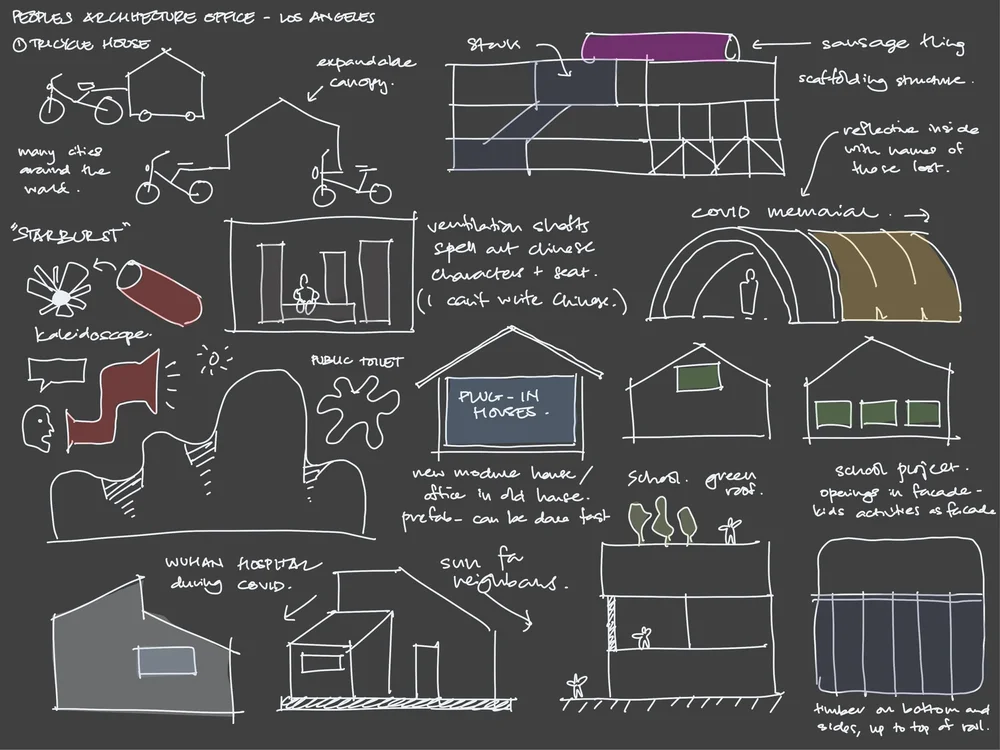 PEOPLES ARCHITECTURE OFFICE - LOS ANGELES
① TRICYCLE HOUSE
expandable
canopy.
many cities
around the
world.
stack
sausage thing
scaffolding structure.
reflective inside
with names of
those lost.
covid memorial.
"STARBURST"
kaleidoscope.
ventilation shafts
spell out chinese
characters + seat.
(I can't write Chinese.)
PUBLIC TOILET
PLUG-IN
HOUSES.
new module house/
office in old house.
prefab - can be done fast
school. green
roof.
school project.
openings in facade -
kids activities as facade
WUHAN HOSPITAL
during COVID.
sun for
neighbours.
timber on bottom and
sides, up to top of rail.